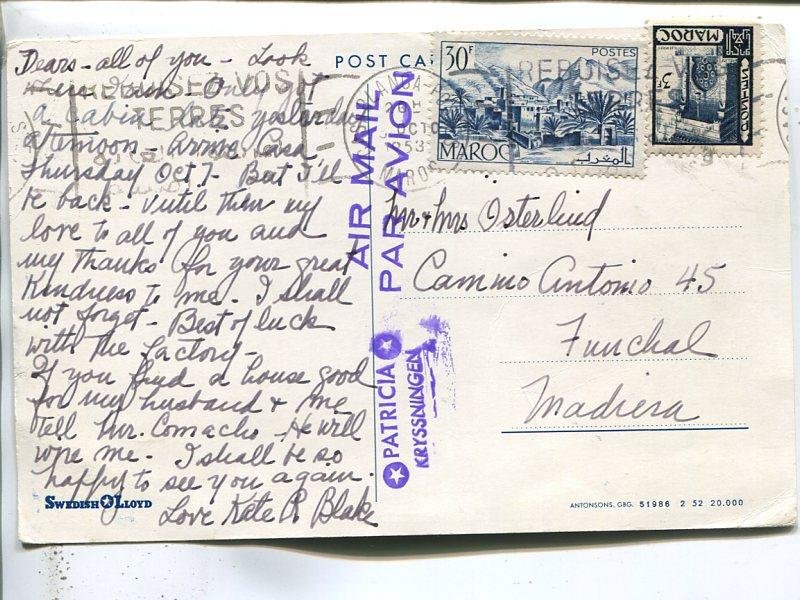 Dears - all of you - Look
where I am - Only got
a cabin late yesterday
afternoon - arrive Casa
Thursday Oct 7 - But I'll
be back - Until then my
love to all of you and
my thanks for your great
Kindness to me - I shall
not forget - Best of luck
with the factory -
If you find a house good
for my husband & me
tell Mr. Comacho - He will
wire me - I shall be so
happy to see you again.
Love Kate R. Blake
SWEDISH LLOYD
POST CA
REBOISEZ VOS
TERRES
AIR MAIL
PAR AVION
PATRICIA
KRYSSNINGEN
30F
POSTES
MAROC
المغرب
MAROC
POSTES
3F
REBOISEZ VOS
TERRES
MAROC
Mr & Mrs Osterlind
Camino Antonio 45
Funchal
Madiera
ANTONSONS, GBG. 51986 2 52 20.000